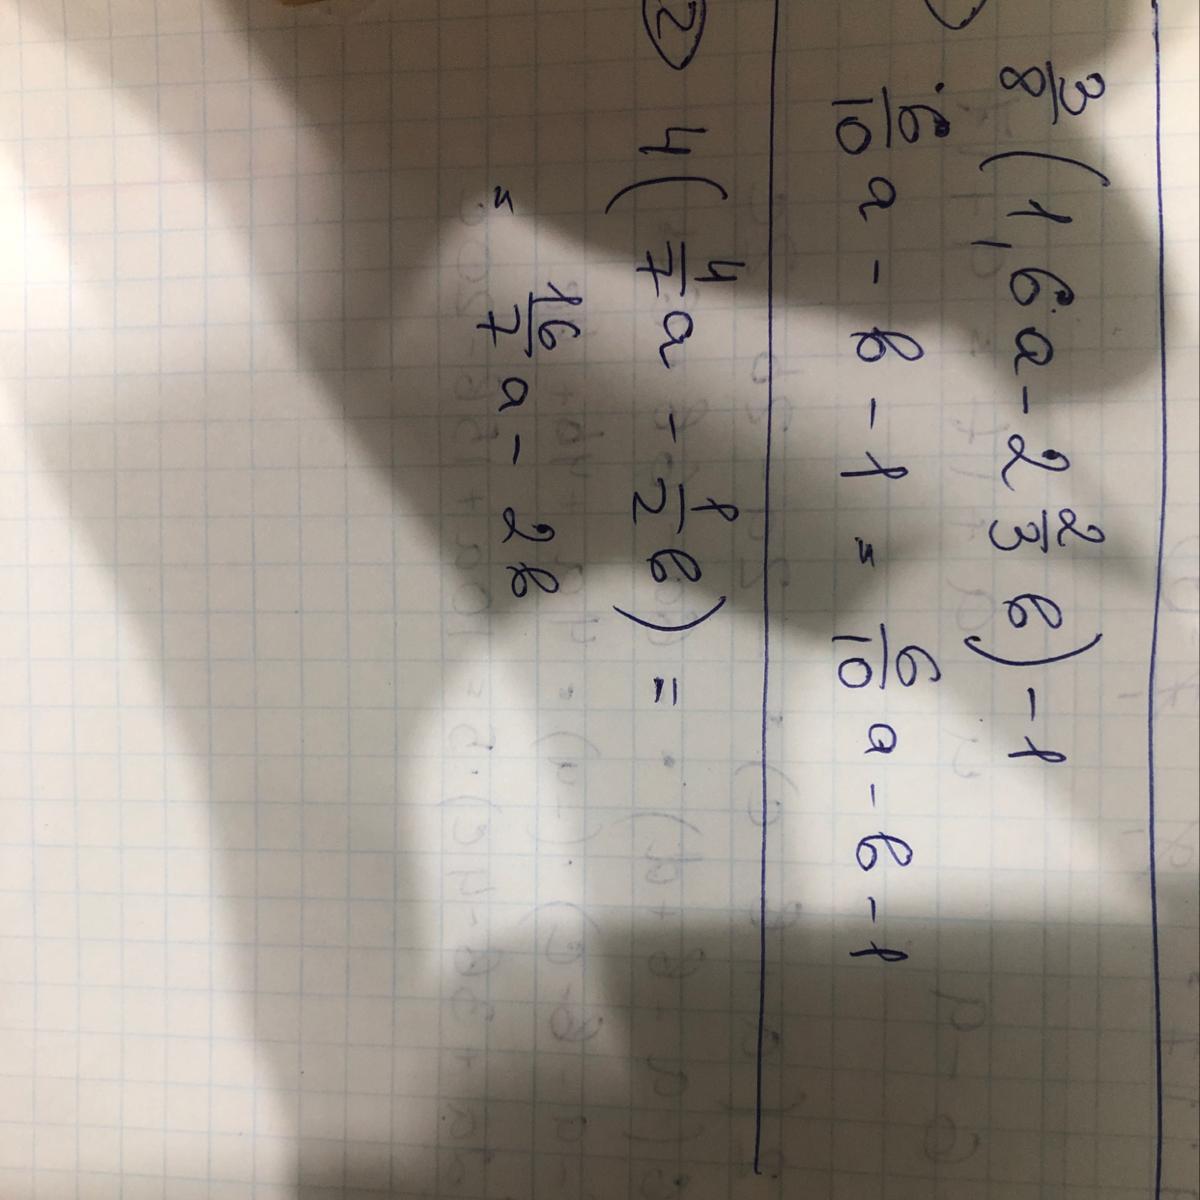 3/8 (1,6a - 2 2/3 в) - 1
6/10 a - в - 1 = 6/10 a - в - 1
② 4(4/7 a - 1/2 в) =
= 16/7 a - 2в